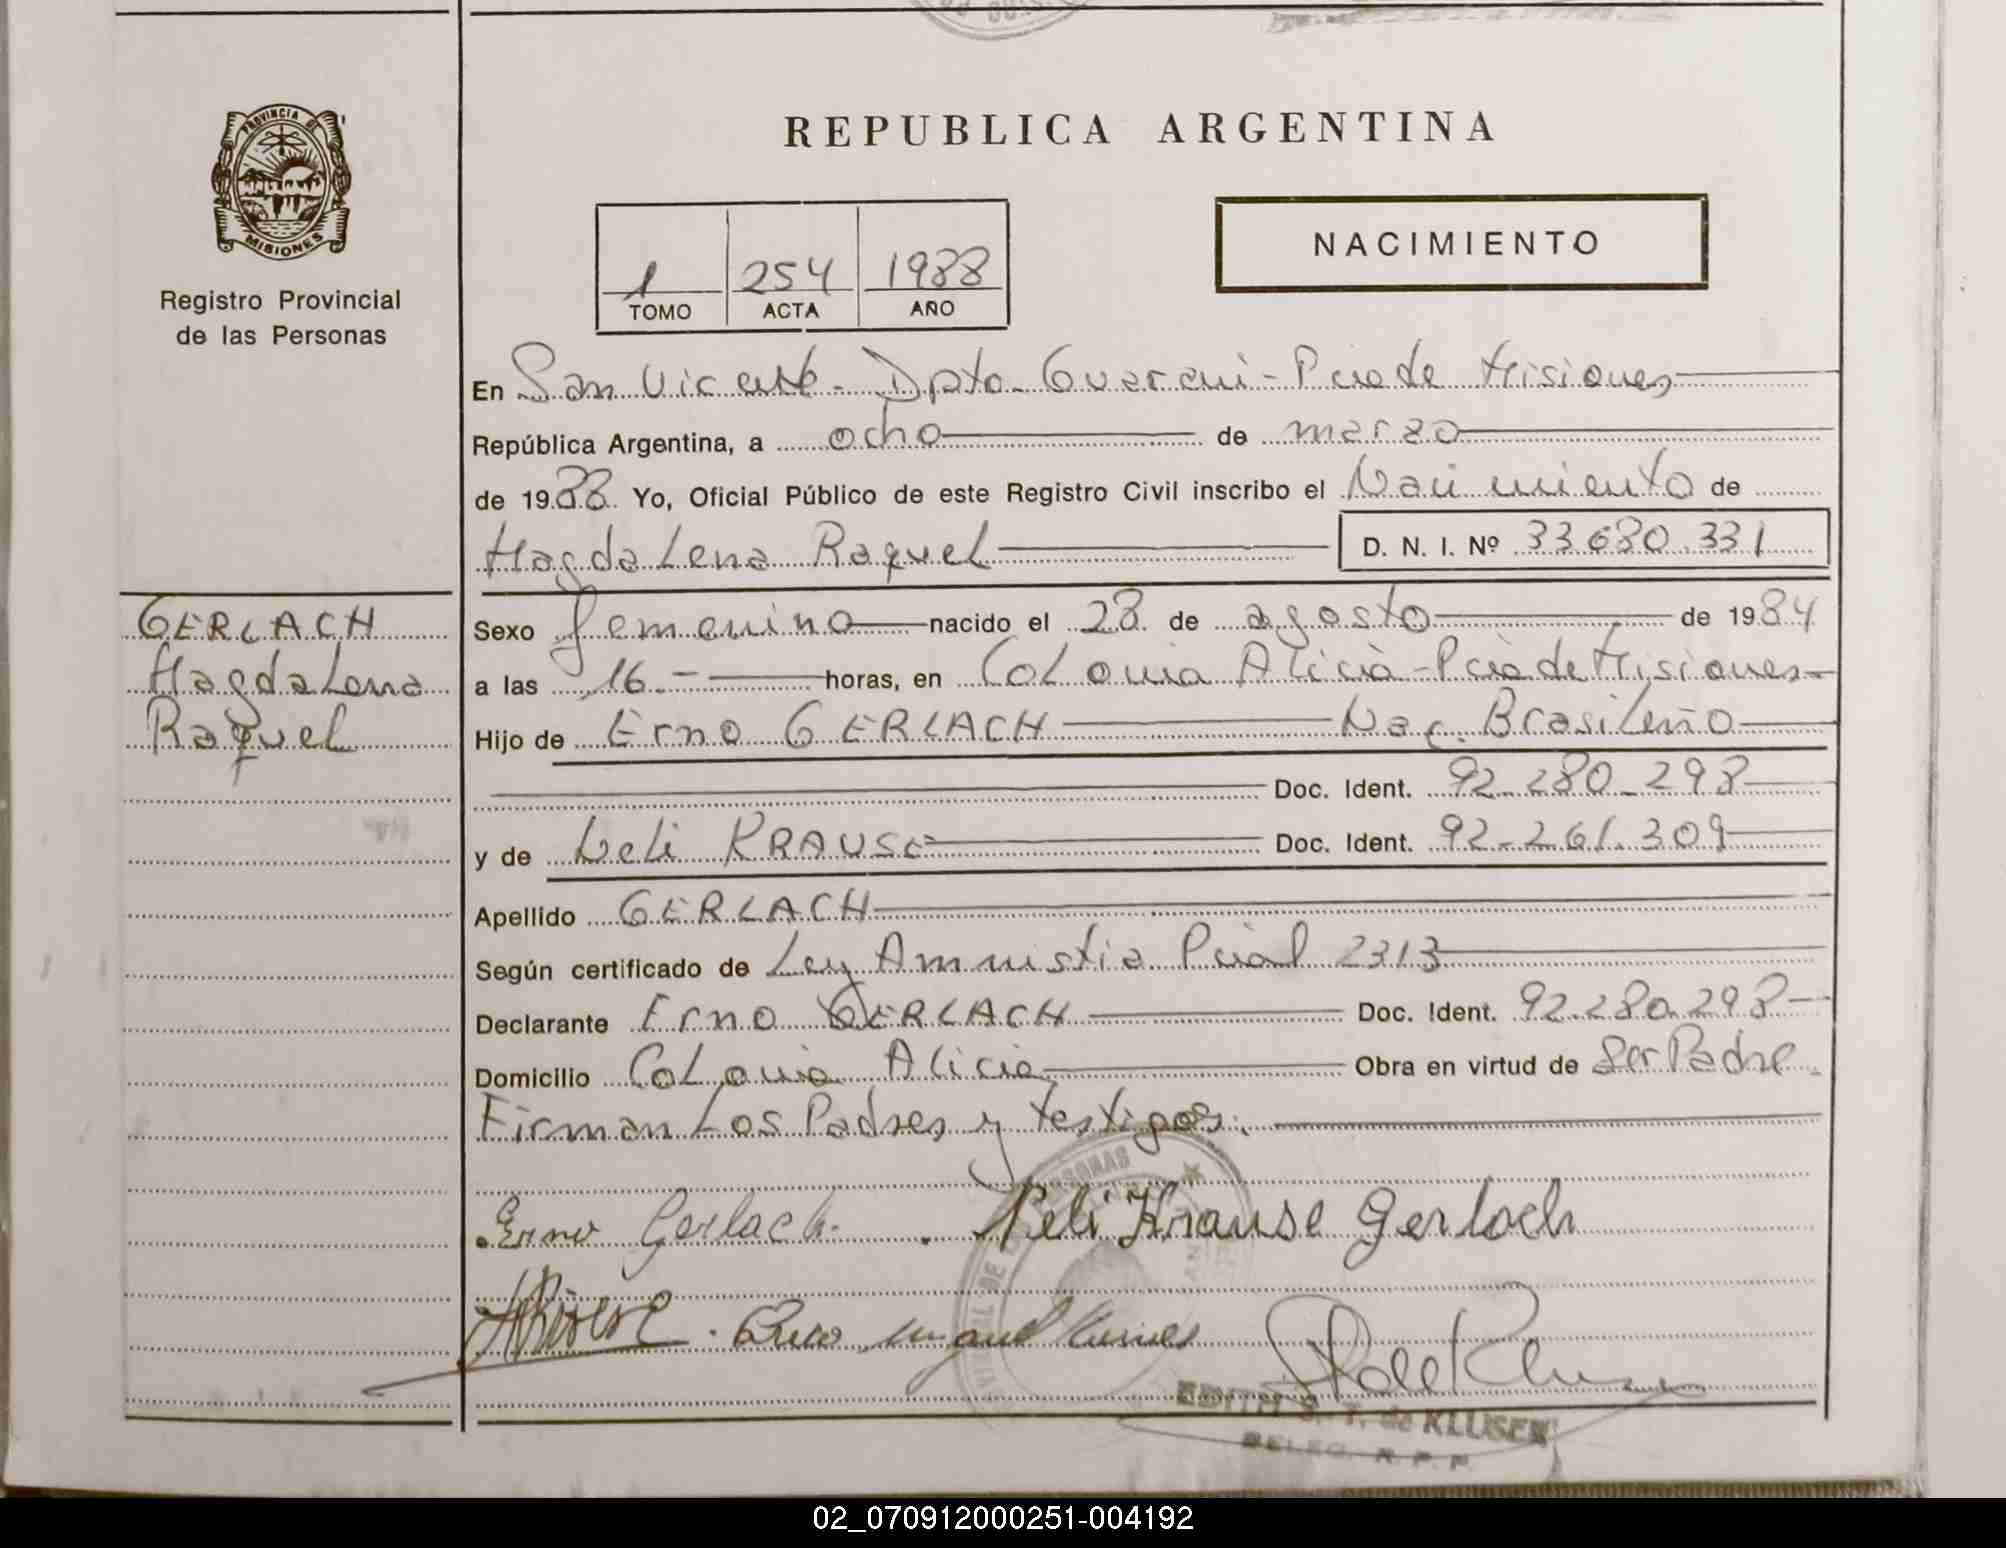 REPUBLICA ARGENTINA
PROVINCIA DE
MISIONES
Registro Provincial
de las Personas
NACIMIENTO
1 254 1988
TOMO ACTA AÑO
En San Vicente - Dpto. Guarani - Pcia de Misiones
República Argentina, a ocho de marzo
de 1988 Yo, Oficial Público de este Registro Civil inscribo el Nacimiento de
Magdalena Raquel D. N. I. Nº 33.680.331
GERLACH
Magdalena
Raquel
Sexo femenino nacido el 28 de agosto de 1984
a las 16.- horas, en Colonia Alicia - Pcia de Misiones
Hijo de Erno GERLACH Nac. Brasileño
Doc. Ident. 92.280.298
y de Neli KRAUSE Doc. Ident. 92.261.309
Apellido GERLACH
Según certificado de Ley Amnistia Pcial 2313
Declarante Erno GERLACH Doc. Ident. 92.280.298
Domicilio Colonia Alicia Obra en virtud de Ser Padre.
Firman Los Padres y testigos.
Erno Gerlach. Neli Krause Gerlach
EDITH S. T. de KLUSEN
DELEG. R. P. P.
02_070912000251-004192